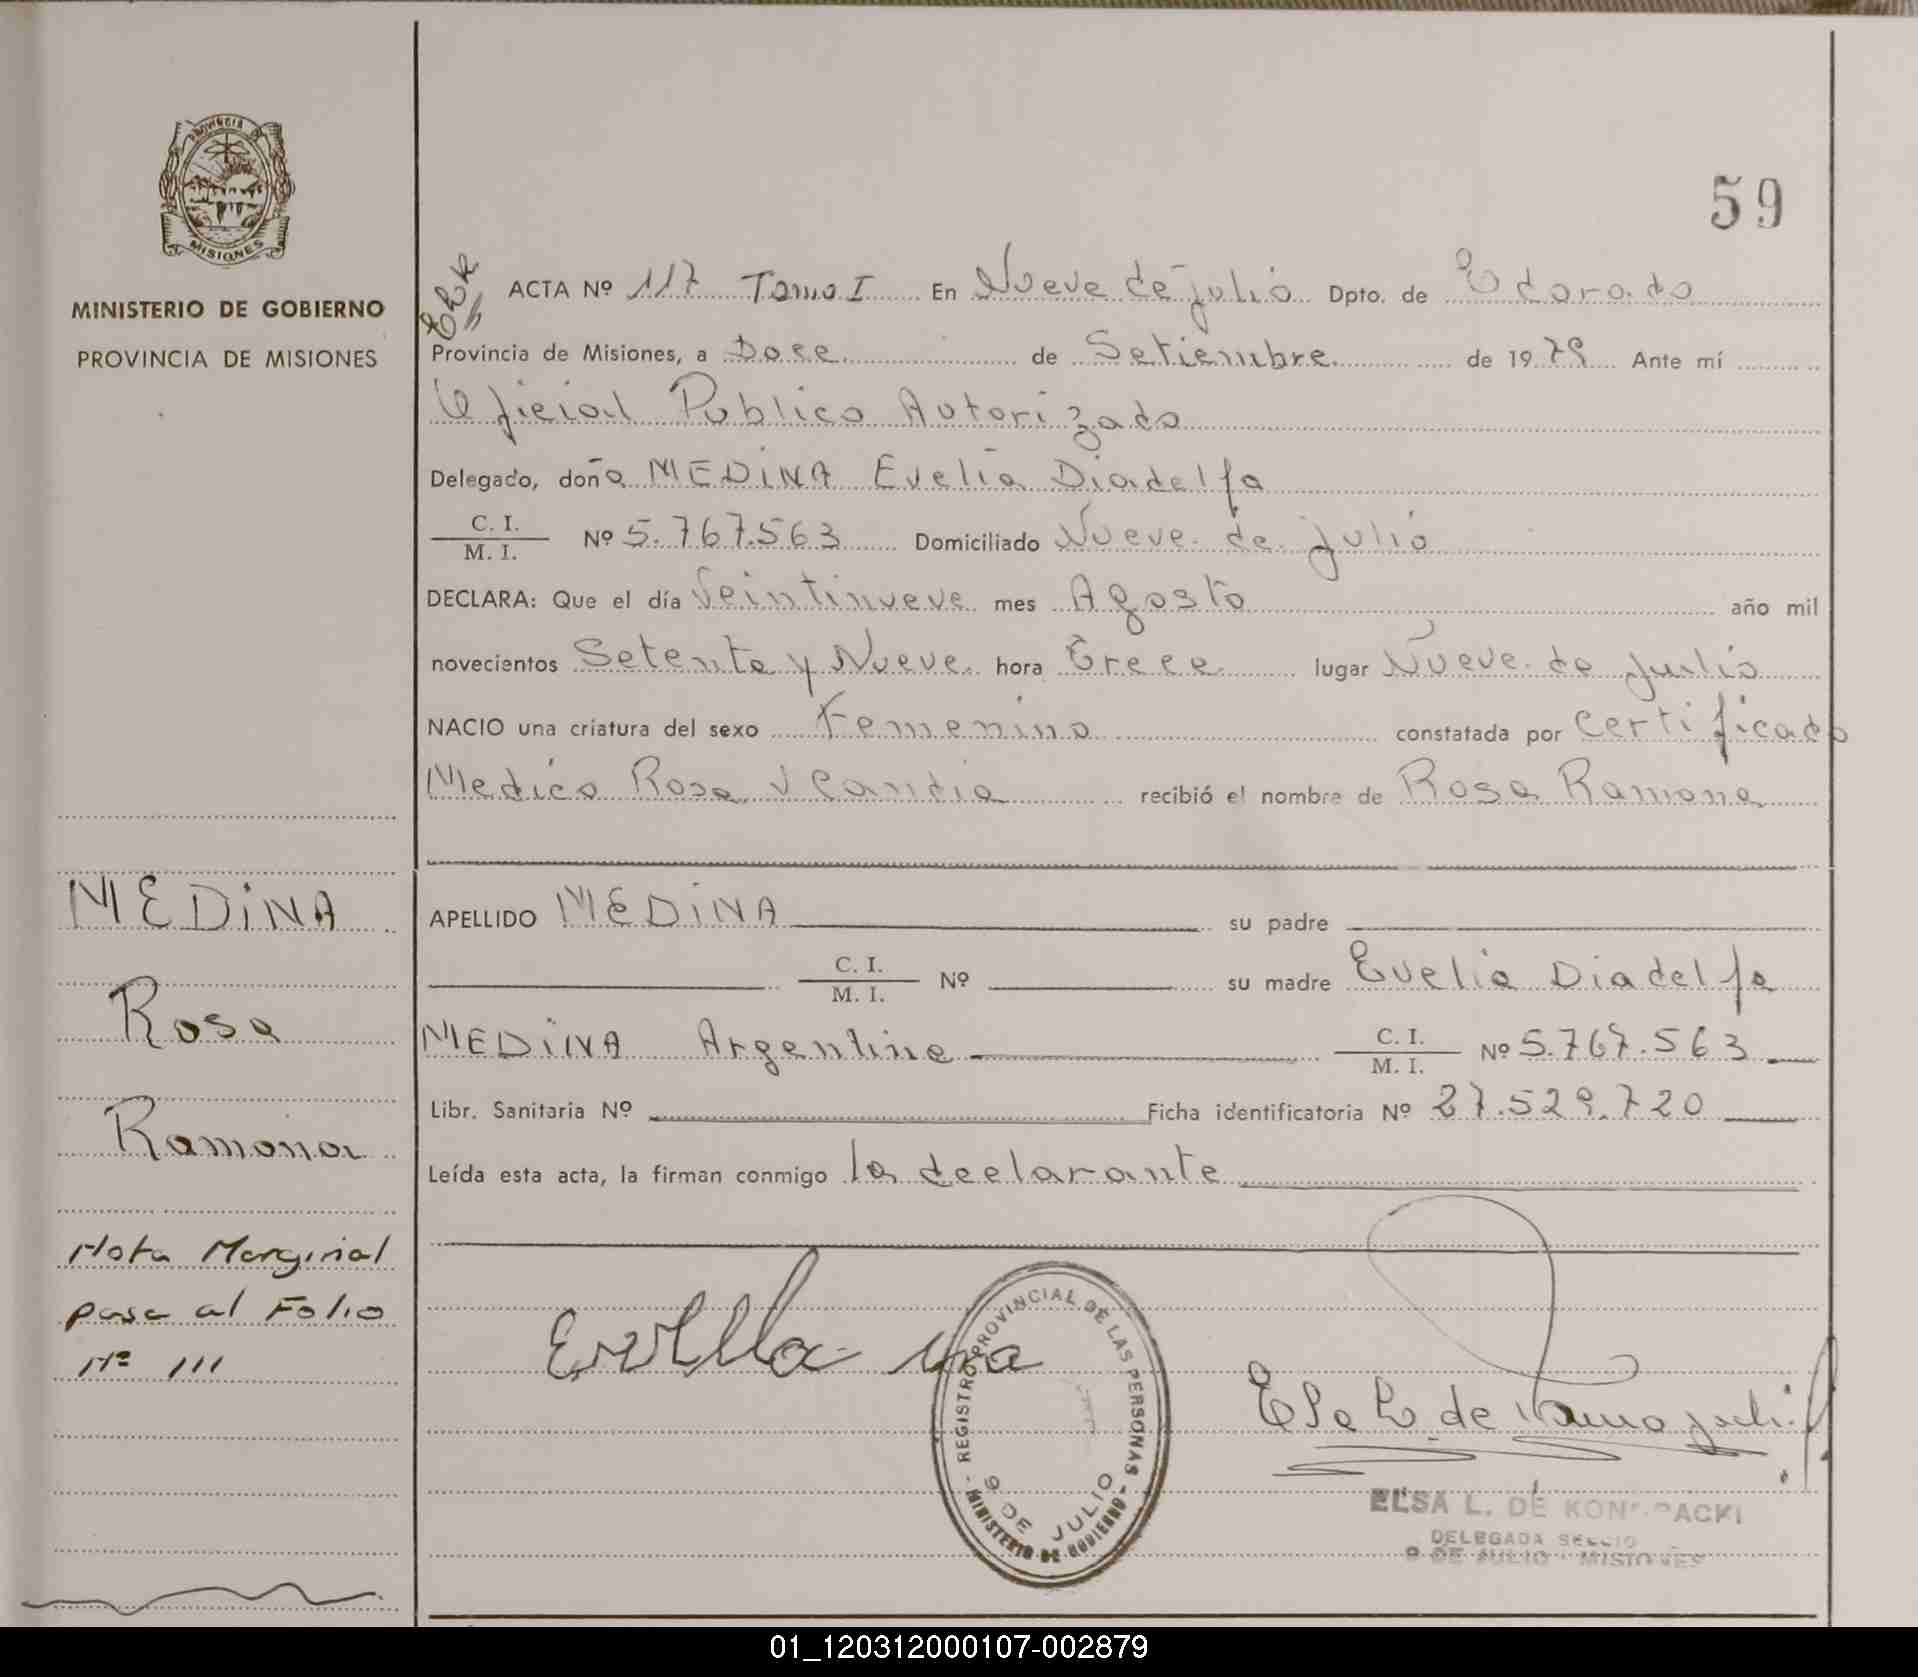 PROVINCIA DE
MISIONES
MINISTERIO DE GOBIERNO
PROVINCIA DE MISIONES
59
ACTA Nº 117 Tomo I En Nueve de julio Dpto. de Eldorado
Provincia de Misiones, a Doce de Setiembre de 1979 Ante mí
Oficial Publico Autorizado
Delegado, doña MEDINA Evelia Diadelfa
C. I.
M. I. Nº 5.767.563 Domiciliado Nueve de julio
DECLARA: Que el día Veintinueve mes Agosto año mil
novecientos Setenta y Nueve hora Trece lugar Nueve de Julio
NACIO una criatura del sexo Femenino constatada por Certificado
Medico Rosa V Candia recibió el nombre de Rosa Ramona
MEDINA
Rosa
Ramona
Nota Marginal
pasa al Folio
Nº 111
APELLIDO MEDINA su padre
C. I.
M. I. Nº su madre Evelia Diadelfa
MEDINA Argentina C. I.
M. I. Nº 5.767.563
Libr. Sanitaria Nº Ficha identificatoria Nº 27.529.720
Leída esta acta, la firman conmigo la declarante
REGISTRO PROVINCIAL DE LAS PERSONAS
9 DE JULIO
MINISTERIO DE GOBIERNO
ELSA L. DE
DELEGADA
9 DE JULIO - MISIONES
01_120312000107-002879